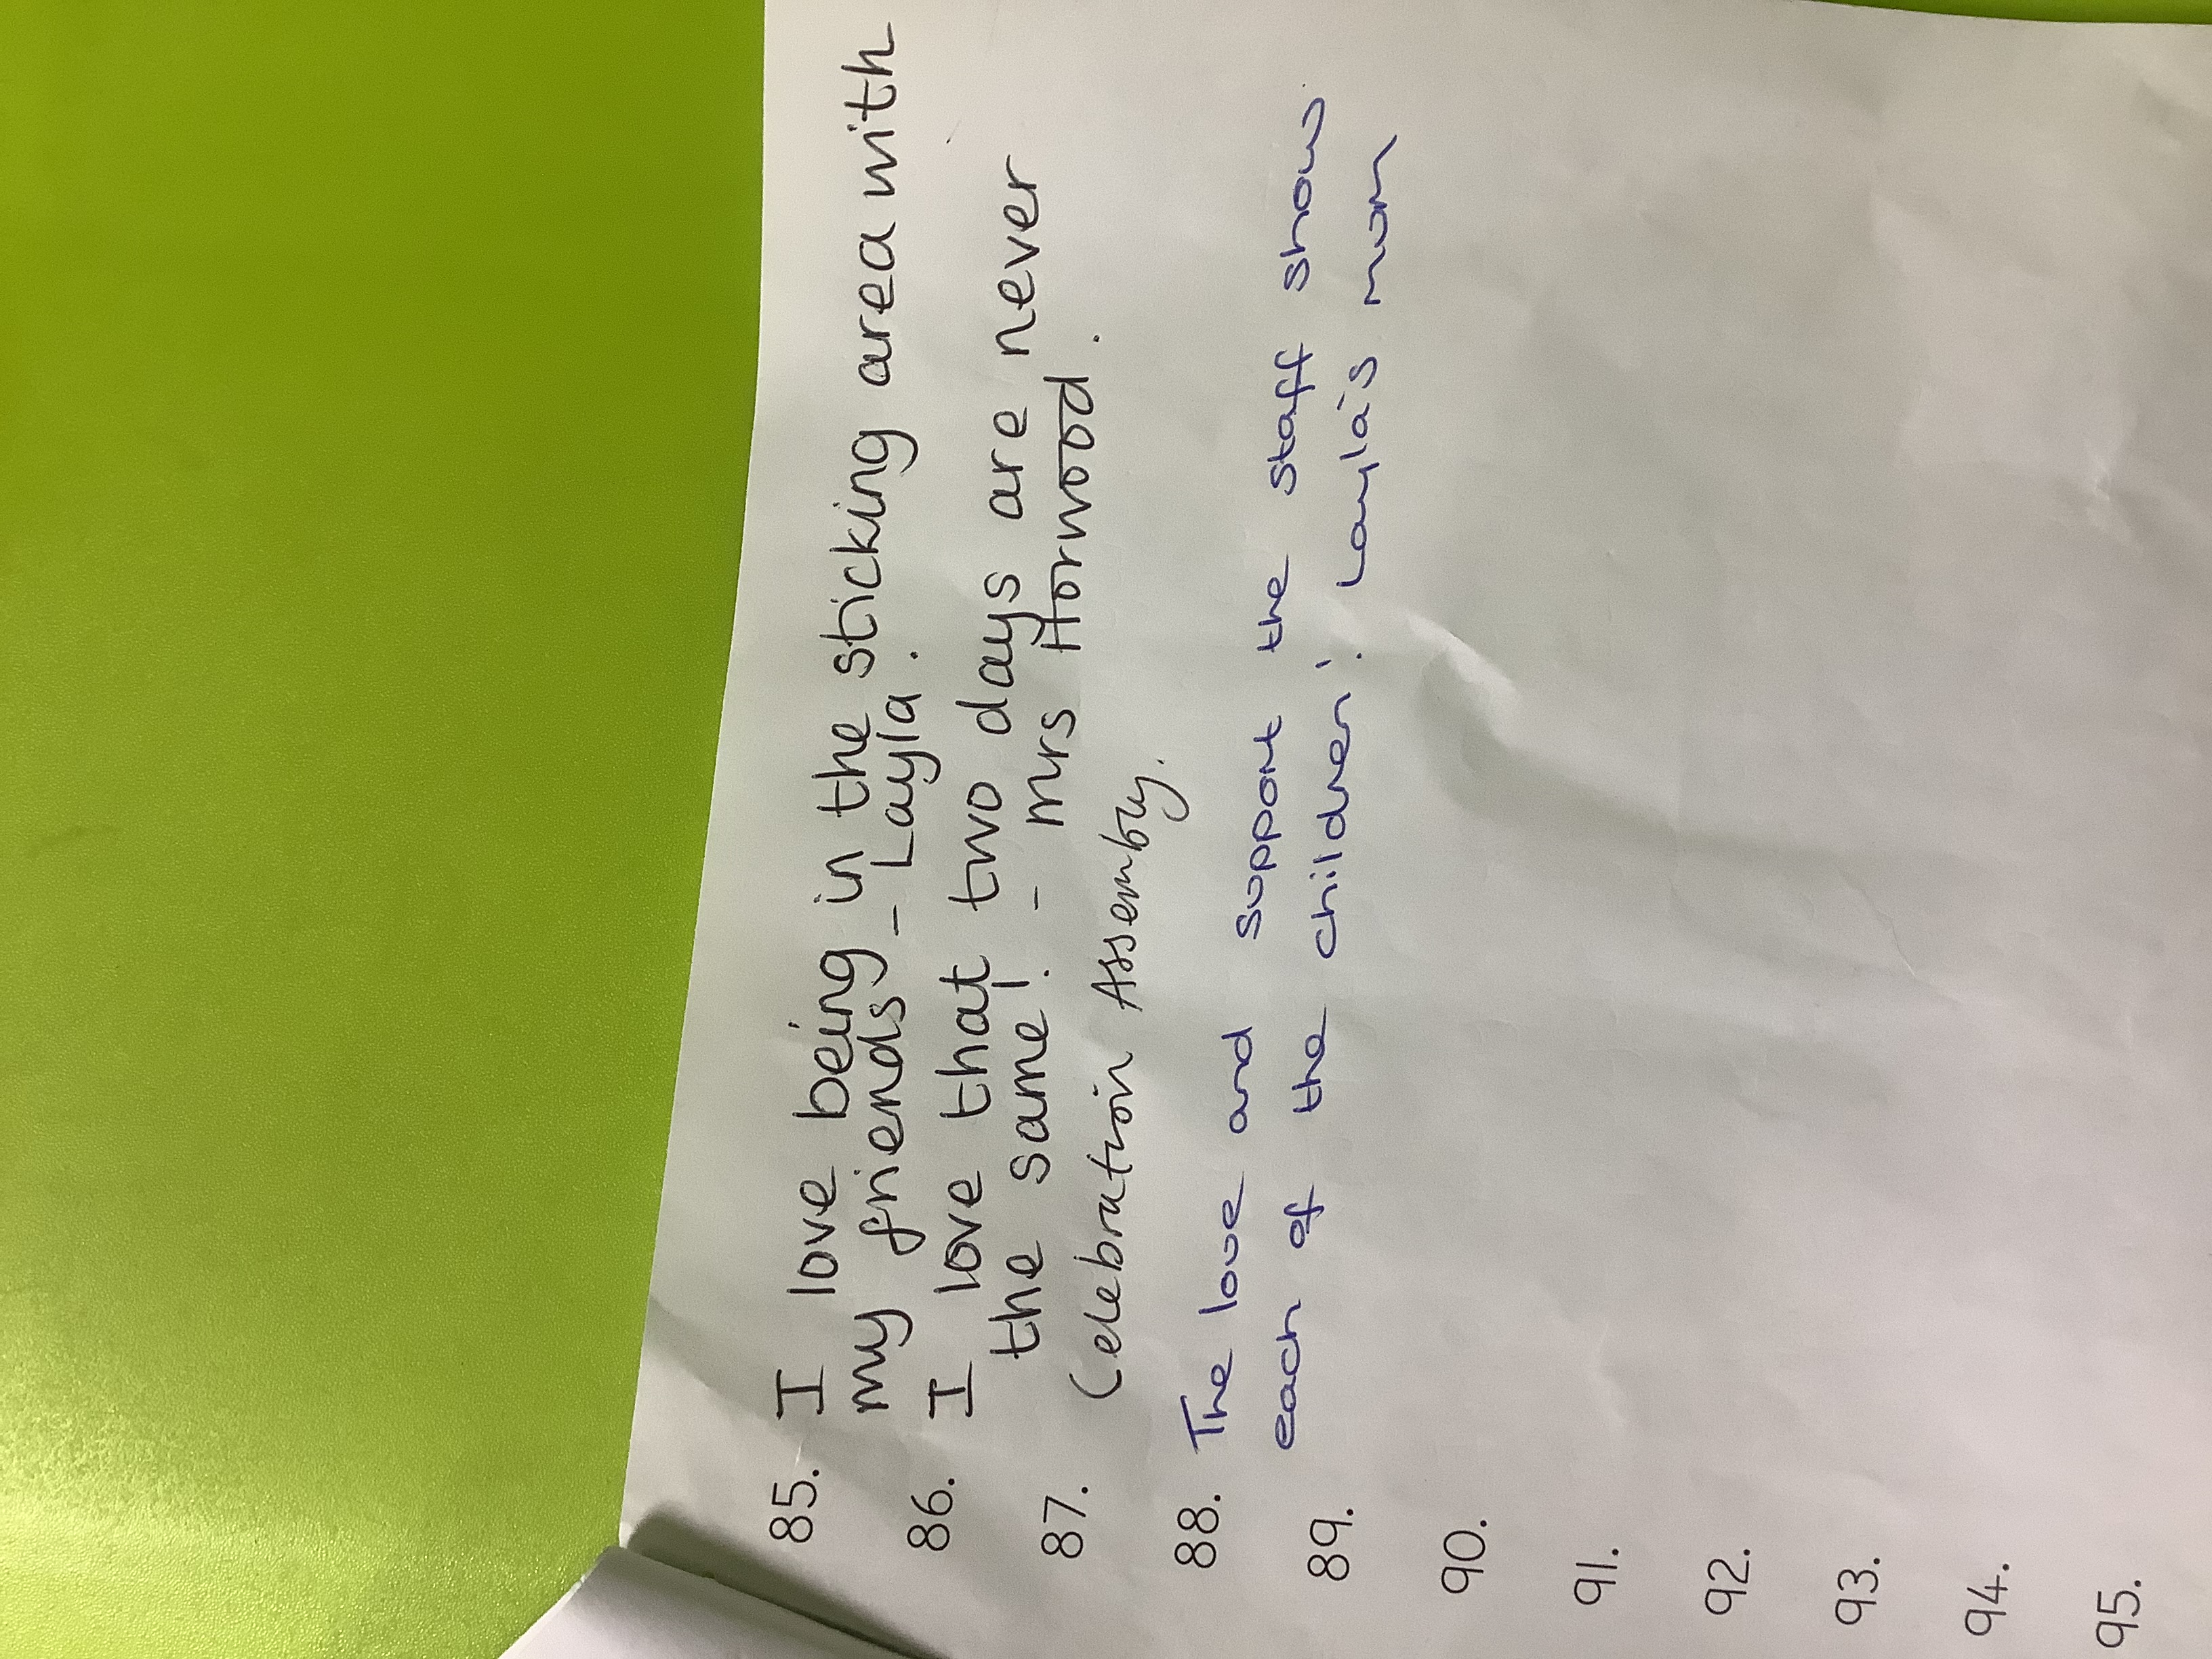 85. I love being in the sticking area with
my friends - Layla.
86. I love that two days are never
the same! - Mrs Horwood.
87. Celebration Assembly.
88. The love and support the staff show
89. each of the children! Layla's mum
90.
91.
92.
93.
94.
95.